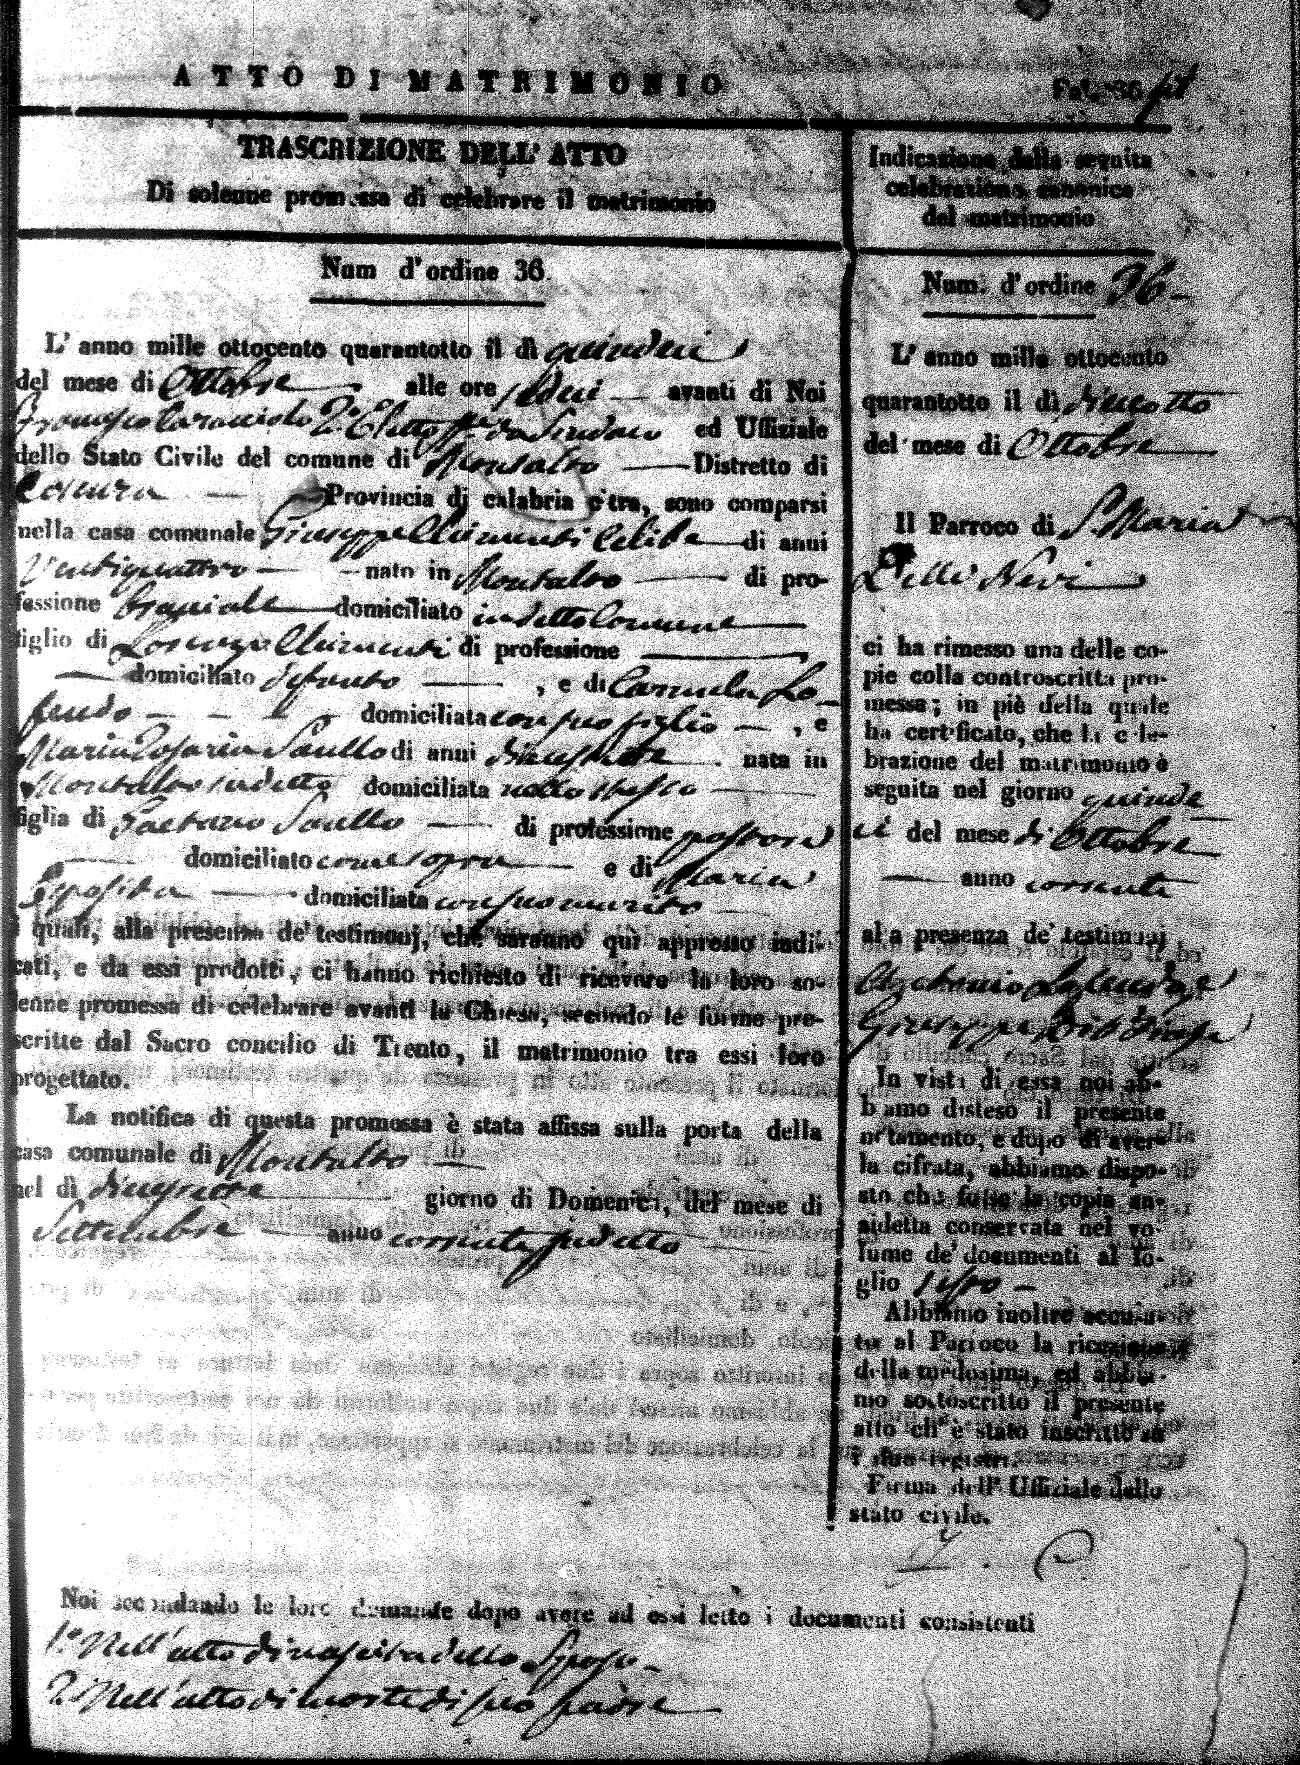 ATTO DI MATRIMONIO
Fol. 36
TRASCRIZIONE DELL' ATTO
Di solenne promessa di celebrare il matrimonio
Num d'ordine 36.
L' anno mille ottocento quarantotto il dì quindeci
del mese di Ottobre alle ore sedeci avanti di Noi
Francesco Caracciolo 2.º Eletto ff. da Sindaco ed Uffiziale
dello Stato Civile del comune di Montalto Distretto di
Cosenza Provincia di calabria citra, sono comparsi
nella casa comunale Giuseppe Chimenti Celibe di anni
Ventiquattro nato in Montalto di pro-
fessione braciale domiciliato in detto Comune
figlio di Lorenzo Chimenti di professione
domiciliato defonto , e di Carmela Lo-
feudo domiciliata con suo figlio , e
Maria Rosaria Saullo di anni diecisette nata in
Montalto sudetto domiciliata nello stesso
figlia di Gaetano Saullo di professione pastore
domiciliato come sopra e di Maria
Esposita domiciliata con suo marito
i quali, alla presenza de' testimonj, che saranno quì appresso indi-
cati, e da essi prodotti, ci hanno richiesto di ricevere la loro so-
lenne promessa di celebrare avanti la Chiesa, secondo le forme pre-
scritte dal Sacro concilio di Trento, il matrimonio tra essi loro
progettato.
La notifica di questa promessa è stata affissa sulla porta della
casa comunale di Montalto
nel dì giorno di Domenica, del mese di
Settembre anno corrente sudetto
Noi secondando le loro demande dopo avere ad essi letto i documenti consistenti
1.º Nell'atto di nascita dello Sposo
2.º Nell'atto di morte di suo padre
Indicazione della seguita
celebrazione canonica
del matrimonio
Num. d'ordine 36
L' anno mille ottocento
quarantotto il dì dieciotto
del mese di Ottobre
Il Parroco di S. Maria
Della Nevi
ci ha rimesso una delle co-
pie colla controscritta pro-
messa; in piè della quale
ha certificato, che la cele-
brazione del matrimonio è
seguita nel giorno quinde
ci del mese di Ottobre
anno corrente
alla presenza de' testimonj
Antonio
Giuseppe
In vista di essa noi ab-
biamo disteso il presente
notamento, e dopo di aver-
la cifrata, abbiamo dispo-
sto che fusse la copia an-
zidetta conservata nel vo-
lume de' documenti al fo-
glio
Abbiamo inoltre accusa-
to al Parroco la ricezione
della medesima, ed abbia-
mo sottoscritto il presente
atto ch' è stato inscritto su
i due registri.
Firma dell' Ufficiale dello
stato civile.